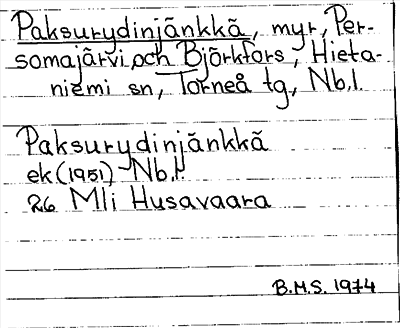 Paksurydinjänkkä, myr, Per-
somajärvi och Björkfors, Hieta-
niemi sn, Torneå tg, Nb.l.
Paksurydinjänkkä
ek (1951) Nb.l.
26 Mli Husavaara
B.M.S. 1974